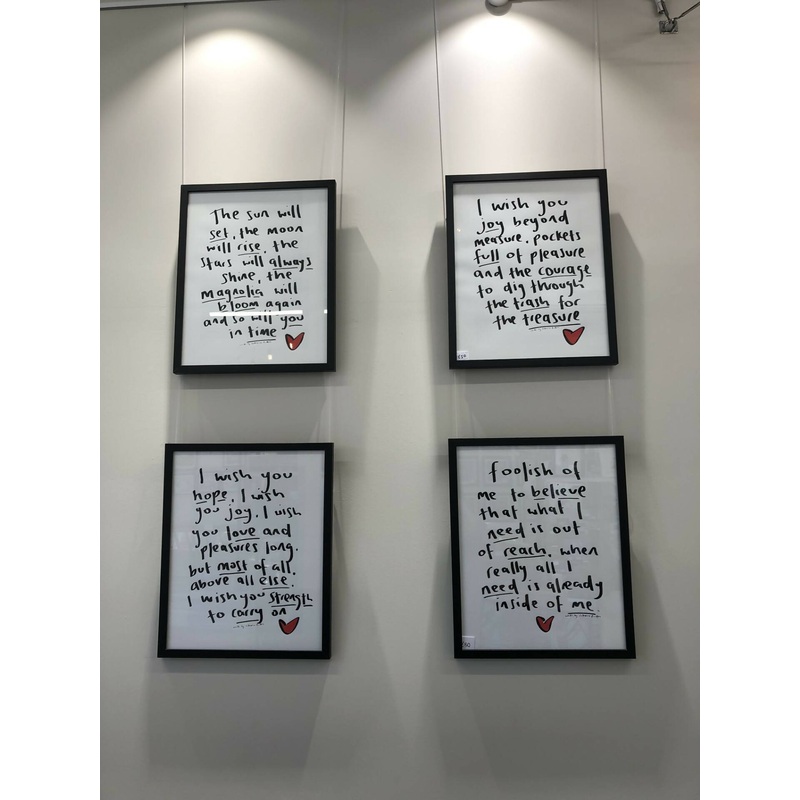 The sun will
set, the moon
will rise, the
stars will always
shine, the
magnolia will
bloom again
and so will you
in time
I wish you
joy beyond
measure, pockets
full of pleasure
and the courage
to dig through
the trash for
the treasure
I wish you
hope, I wish
you joy, I wish
you love and
pleasures long.
but most of all,
above all else,
I wish you strength
to carry on
foolish of
me to believe
that what I
need is out
of reach, when
really all I
need is already
inside of me